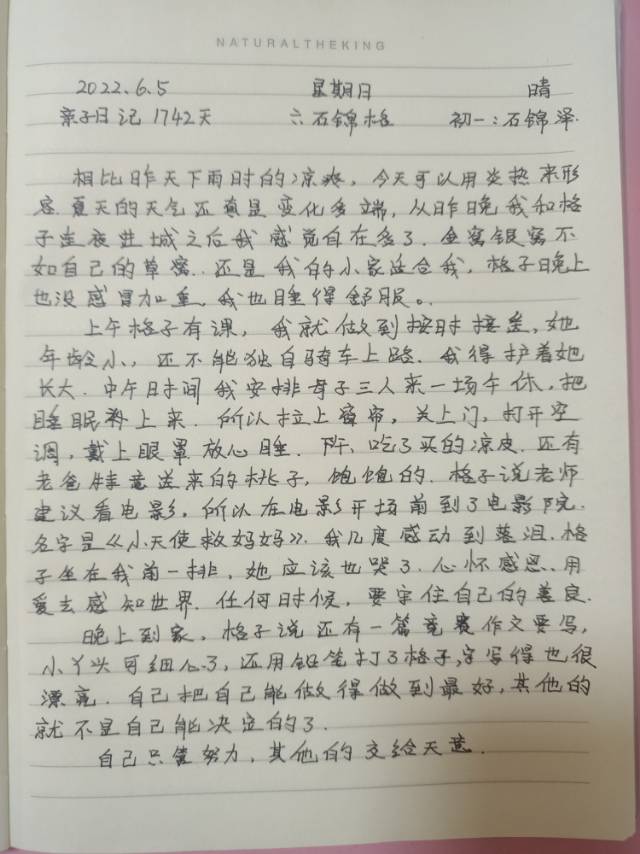 NATURALTHEKING
2022.6.5 星期日 晴
亲子日记 1742天 六石锦格 初一:石锦泽.
相比昨天下雨时的凉爽,今天可以用炎热来形
容.夏天的天气还真是变化多端,从昨晚我和格
子连夜进城之后我感觉自在多了.金窝银窝不
如自己的草窝.还是我的小家适合我,格子晚上
也没感冒加重,我也睡得舒服。.
上午格子有课,我就做到按时接送,她
年龄小,还不能独自骑车上路.我得护着她
长大.中午时间我安排母子三人来一场午休,把
睡眠补上来.所以拉上窗帘,关上门,打开空
调,戴上眼罩放心睡.下午,吃了买的凉皮.还有
老爸特意送来的桃子,饱饱的.格子说老师
建议看电影,所以在电影开场前到了电影院.
名字是《小天使救妈妈》.我几度感动到落泪.格
子坐在我前一排,她应该也哭了.心怀感恩.用
爱去感知世界.任何时候,要守住自己的善良.
晚上到家,格子说还有一篇竞赛作文要写,
小丫头可细心了,还用铅笔打了格子,字写得也很
漂亮.自己把自己能做得做到最好,其他的
就不是自己能决定的了.
自己只管努力,其他的交给天意.